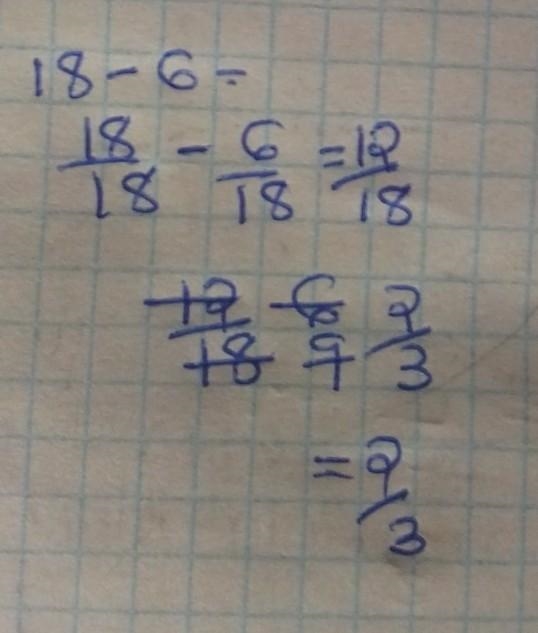 18 - 6 =
18/18 - 6/18 = 12/18
12/18 6/9 2/3
= 2/3